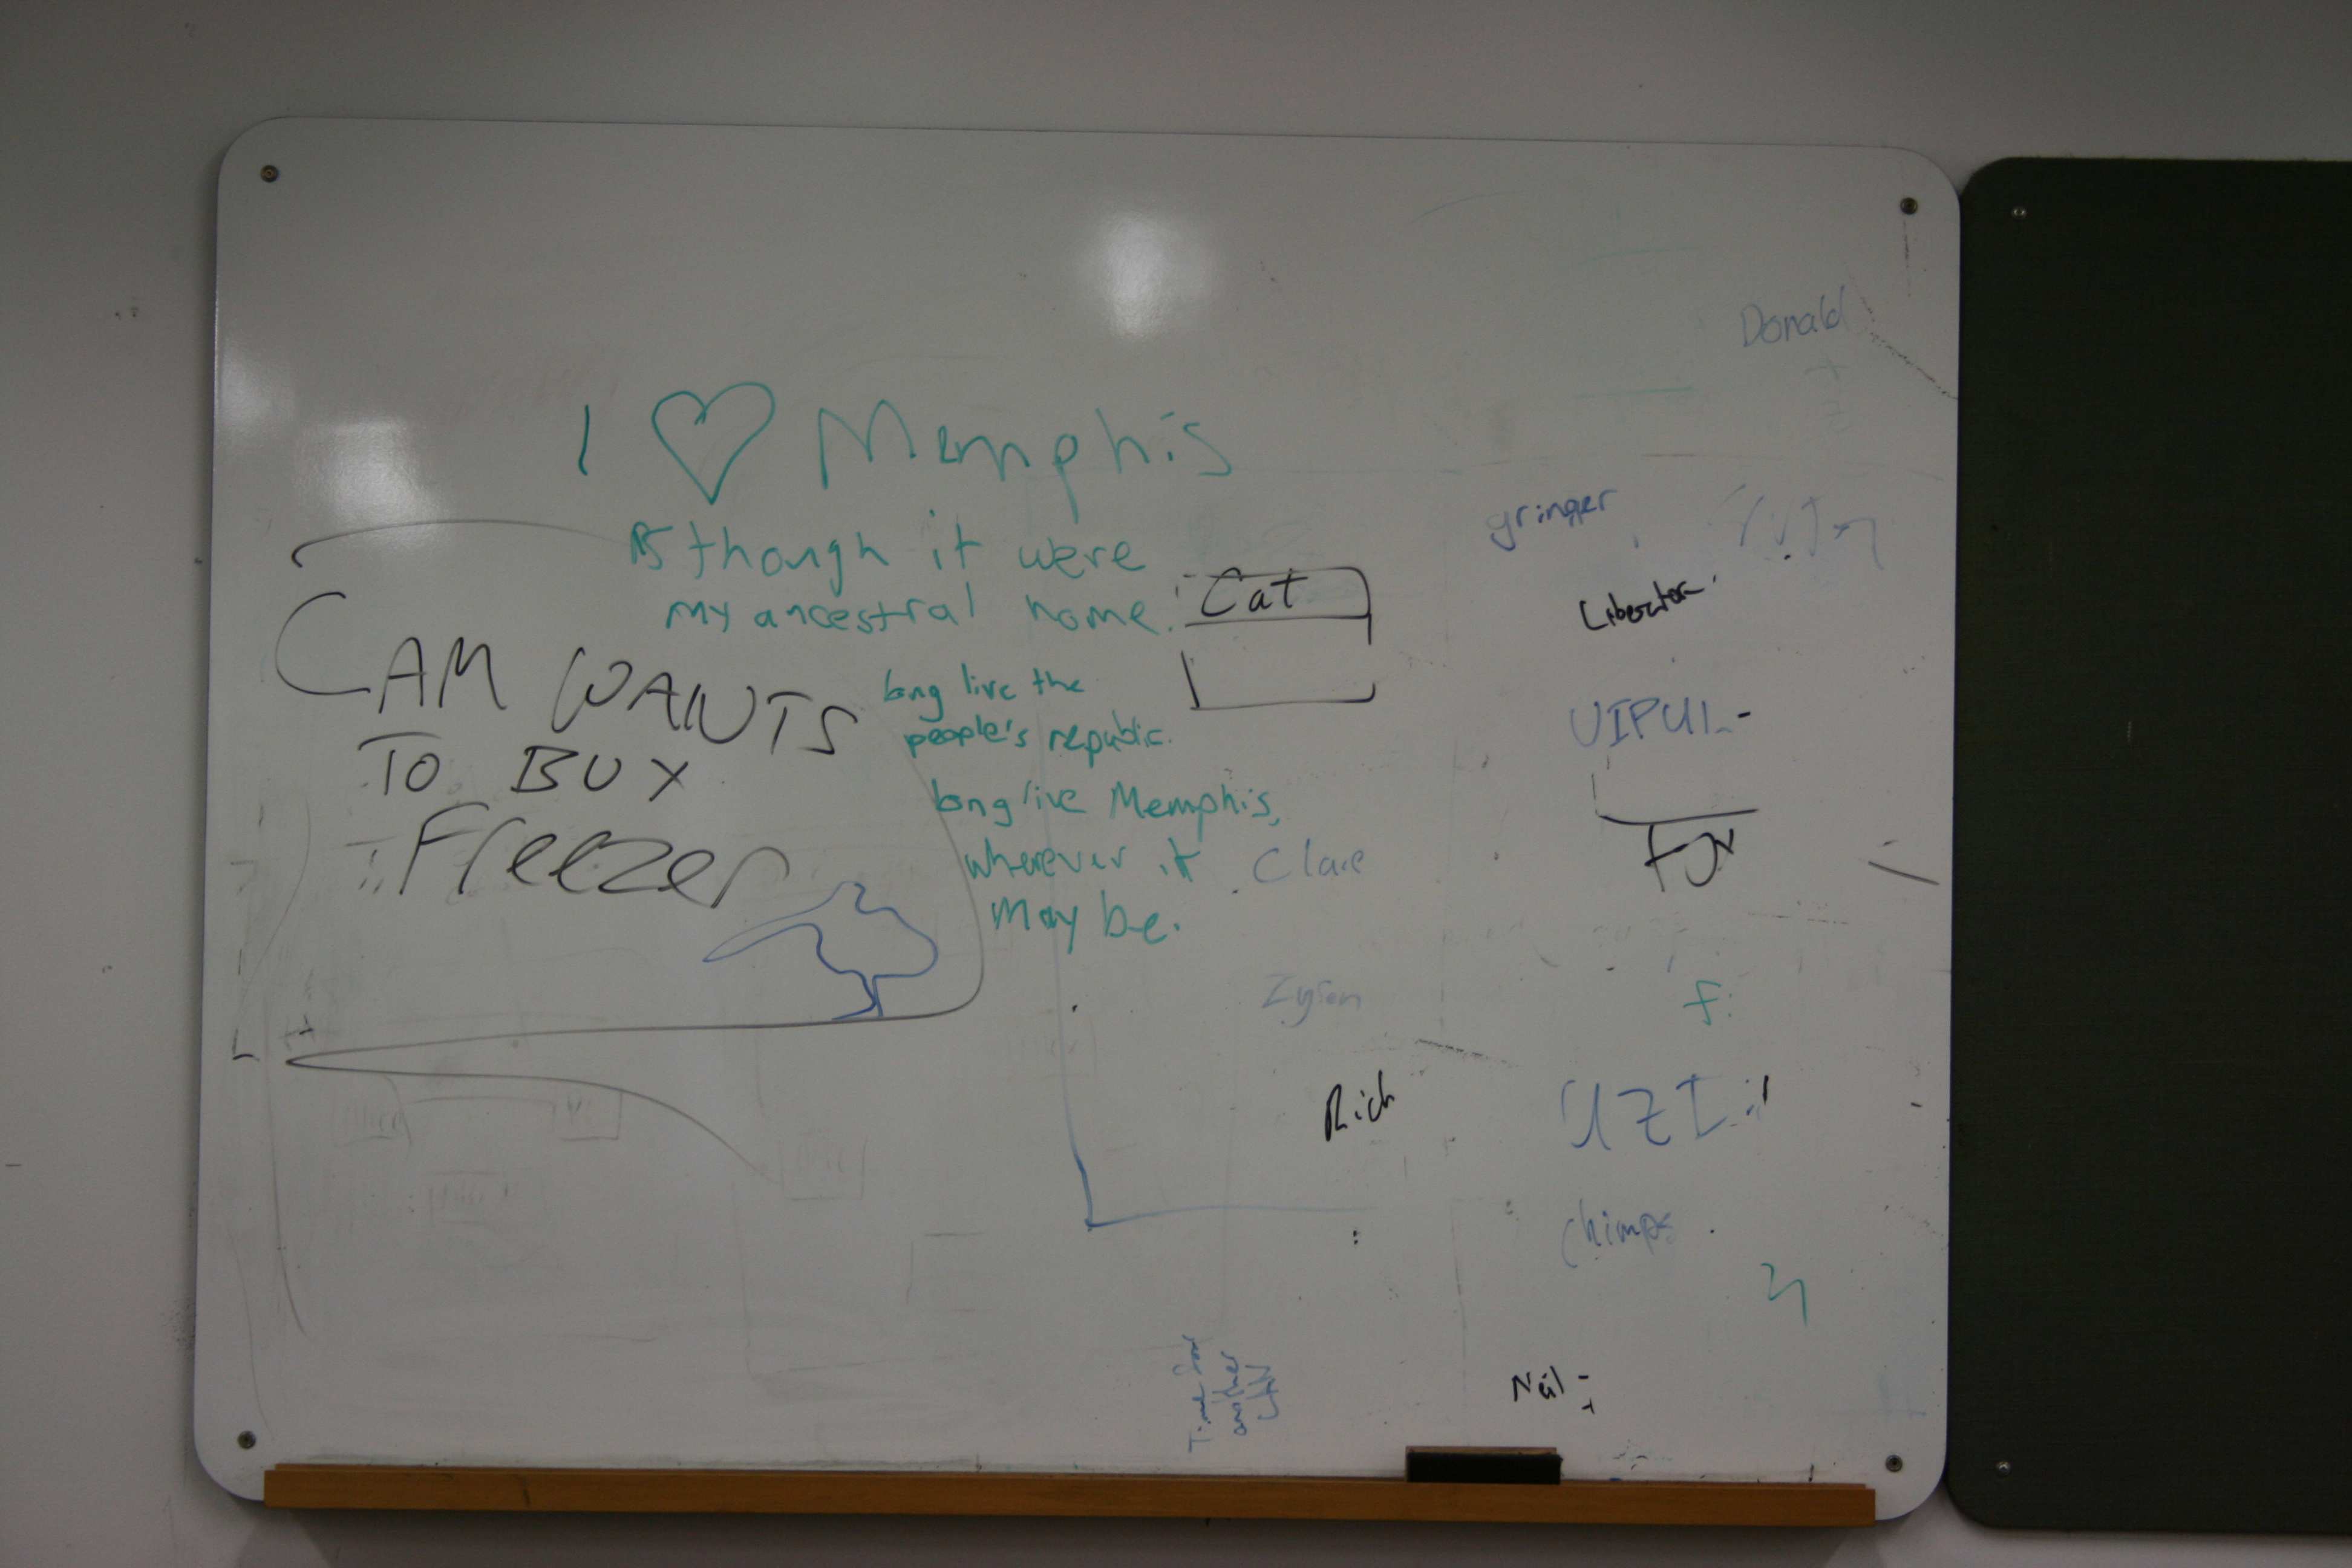 Donald
I ♡ Memphis
gringer
As though it were
my ancestral home.
Cat
Liberator
CAM WANTS
TO BUY
Freezer
long live the
people's republic.
VIPUL
long live Memphis,
wherever it
may be.
Clare
Rich
UZI
chimps
Time for
another
Neil